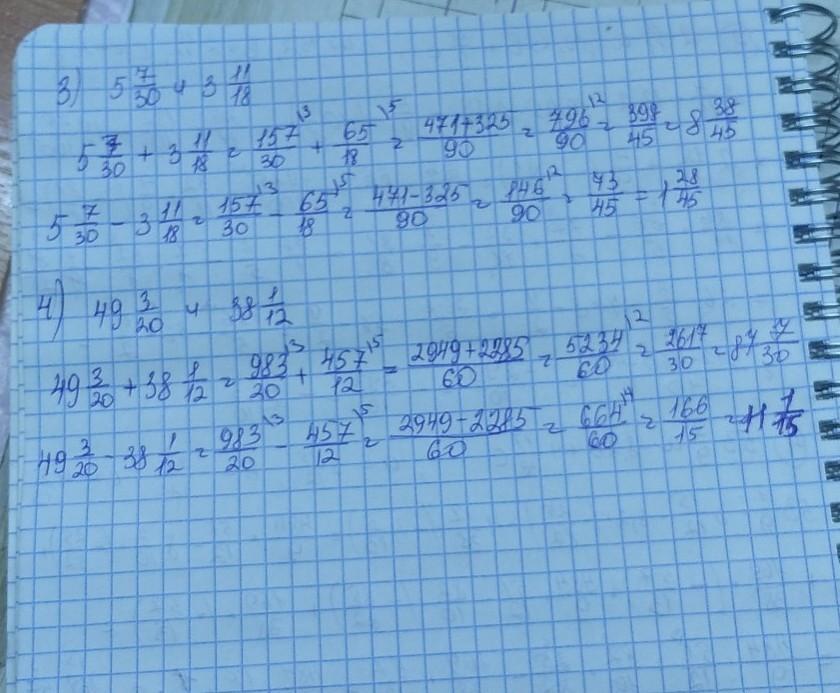 3) 5 7/30 и 3 11/18
5 7/30 + 3 11/18 = 157/30 \3 + 65/18 \5 = 471+325/90 = 796/90 \2 = 398/45 = 8 38/45
5 7/30 - 3 11/18 = 157/30 \3 - 65/18 \5 = 471-325/90 = 146/90 \2 = 73/45 = 1 28/45
4) 49 3/20 и 38 1/12
49 3/20 + 38 1/12 = 983/20 \3 + 457/12 \5 = 2949+2285/60 = 5234/60 \2 = 2617/30 = 87 7/30
49 3/20 - 38 1/12 = 983/20 \3 - 457/12 \5 = 2949-2285/60 = 664/60 \4 = 166/15 = 11 1/15